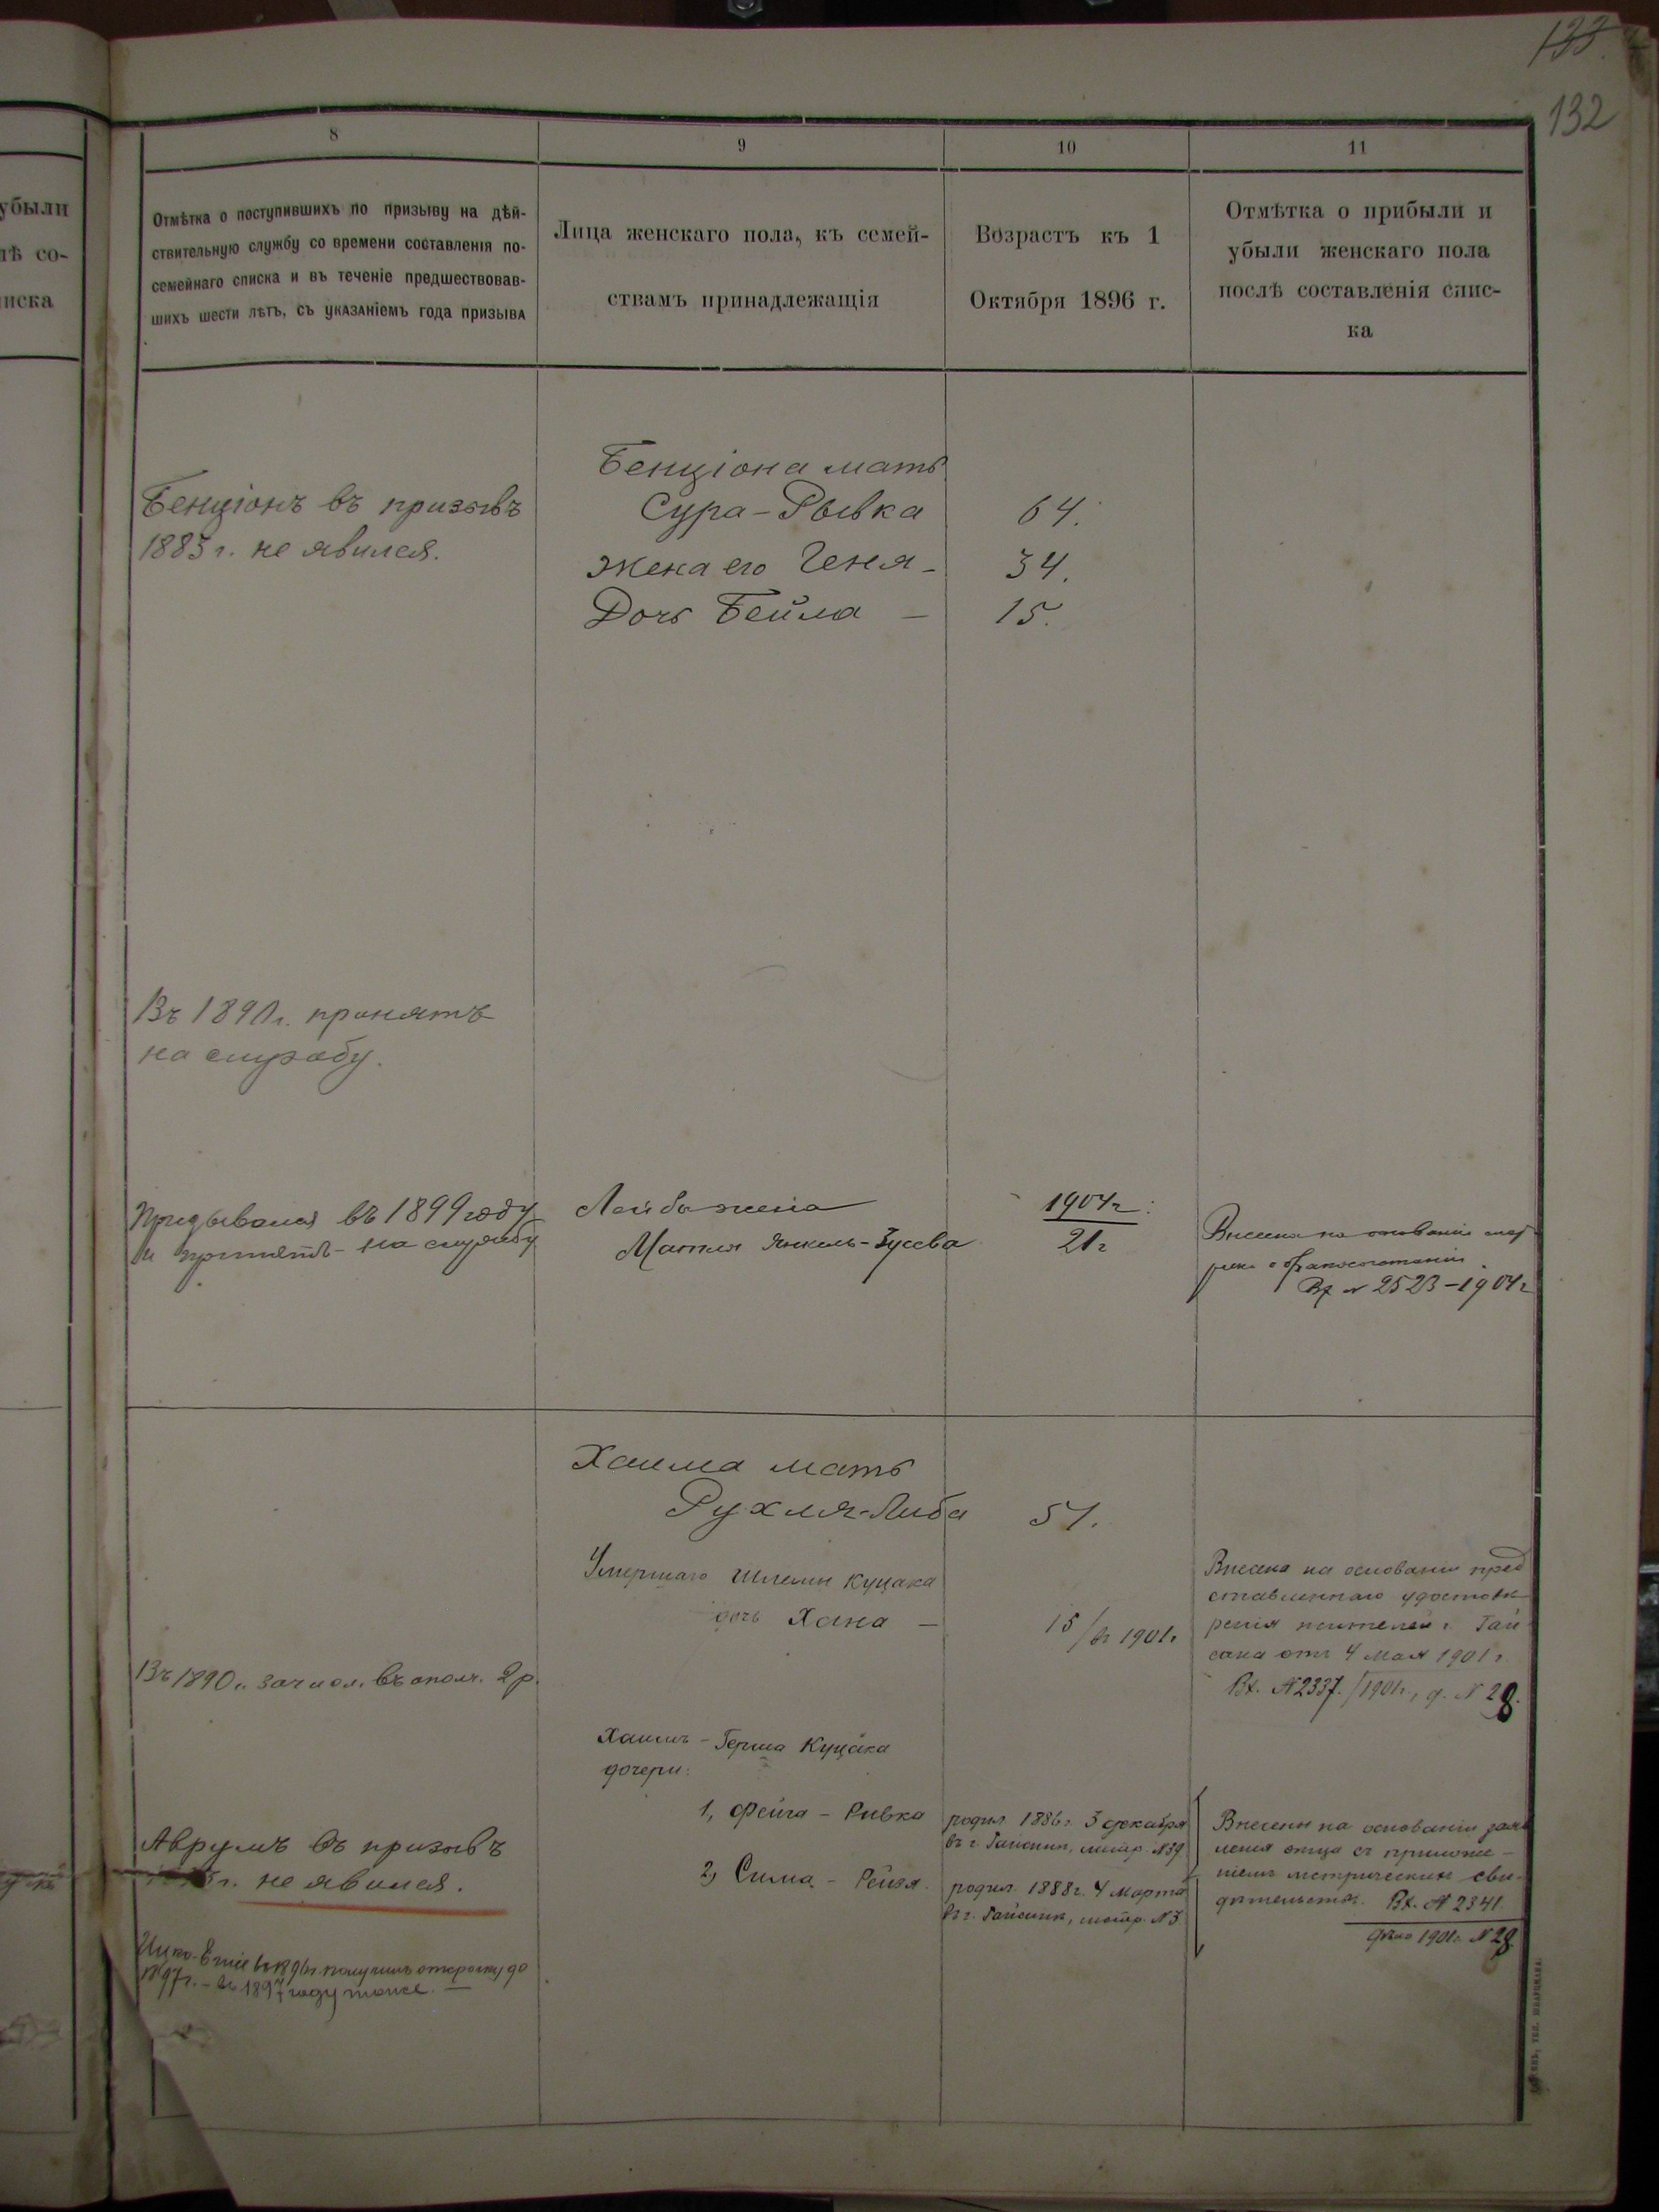 133.
132
убыли
лѣ со-
писка
8
9
10
11
Отмѣтка о поступившихъ по призыву на дѣй-
ствительную службу со времени составленія по-
семейнаго списка и въ теченіе предшествовав-
шихъ шести лѣтъ, съ указаніемъ года призыва
Лица женскаго пола, къ семей-
ствамъ принадлежащія
Возрастъ къ 1
Октября 1896 г.
Отмѣтка о прибыли и
убыли женскаго пола
послѣ составленія спис-
ка
Бенціонъ въ призывъ
1883 г. не явился.
Бенціона мать
Сура-Рывка 64.
жена его Геня - 34.
Дочь Бейла — 15.
Въ 1890 г. принятъ
на службу.
Призывался въ 1899 году
и принятъ - на службу
Лейба жена
Матля Янкель-Зусева
1904 г.
21 г
Внесена на основаніи
Вх № 2523-1904 г
Хаима мать
Рухля-Либа 51.
Умершаго Шлемы Куцака
дочь Хана —
15/въ 1901 г
Внесена на основаніи пред
ставленнаго удостовѣ-
ренія жителей г. Гай
сина отъ 4 Мая 1901 г.
Вх. № 2337./1901 г., д. № 28.
Въ 1890 г. зачисл. въ ополч. 2 р.
Хаимъ - Герша Куцака
дочери:
1, Фейга - Ривка
родил 1886 г. 3 декабря
въ г. Гайсинѣ, метр. № 39
2, Сима - Рейзя.
родил. 1888 г. 4 Марта
въ г. Гайсинѣ, метр. № 3
Внесены на основаніи заяв
ленія отца съ приложе-
ніемъ метрическихъ сви-
дѣтельствъ. Вх. № 2341.
дѣло 1901 г. № 28
Аврумъ въ призывъ
г. не явился.
Ицко- въ 1896 г. получилъ отсрочку до
1897 г. - въ 1897 году тоже. —